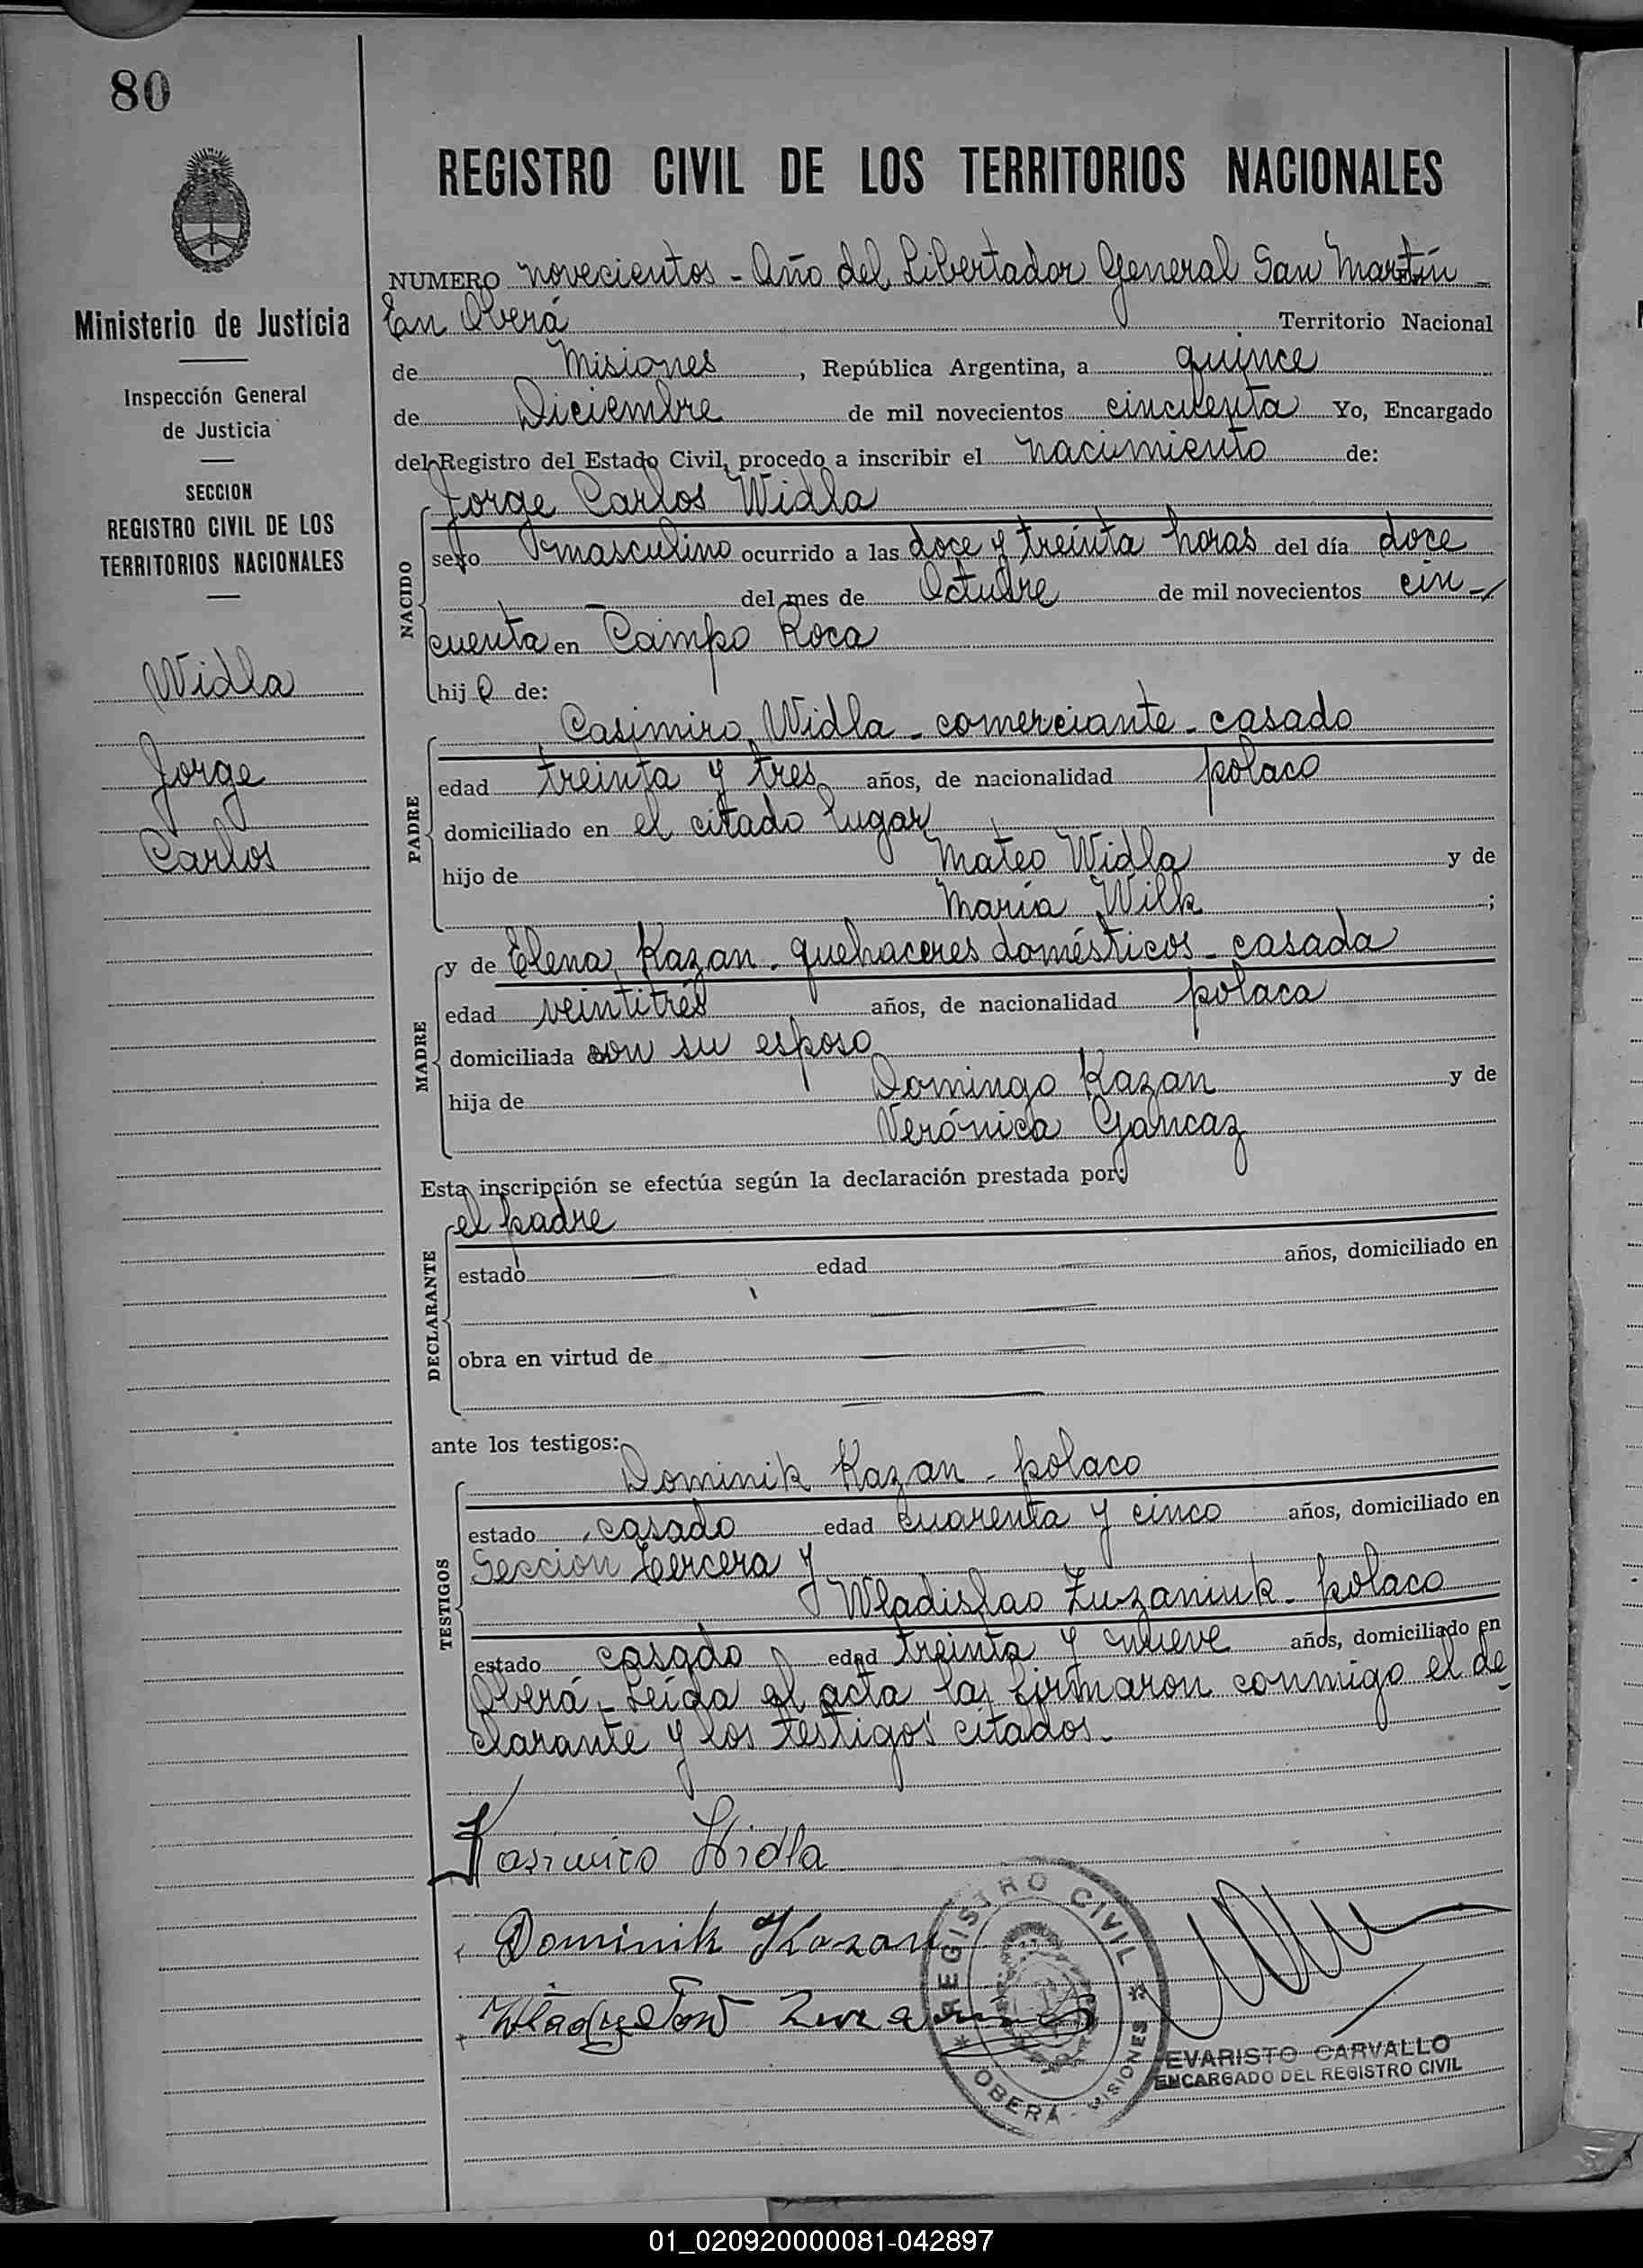 80
REGISTRO CIVIL DE LOS TERRITORIOS NACIONALES
Ministerio de Justicia
Inspección General
de Justicia
SECCION
REGISTRO CIVIL DE LOS
TERRITORIOS NACIONALES
Widla
Jorge
Carlos
NUMERO novecientos - Año del Libertador General San Martín -
En Oberá Territorio Nacional
de Misiones, República Argentina, a quince
de Diciembre de mil novecientos cincuenta Yo, Encargado
del Registro del Estado Civil, procedo a inscribir el nacimiento de:
NACIDO
Jorge Carlos Widla
sexo masculino ocurrido a las doce y treinta horas del día doce
del mes de Octubre de mil novecientos cin-
cuenta en Campo Roca
hijo de:
PADRE
Casimiro Widla - comerciante - casado
edad treinta y tres años, de nacionalidad polaco
domiciliado en el citado lugar
hijo de Mateo Widla y de
María Wilk ;
MADRE
y de Elena Kazan - quehaceres domésticos - casada
edad veintitrés años, de nacionalidad polaca
domiciliada con su esposo
hija de Domingo Kazan y de
Verónica Gancaz
Esta inscripción se efectúa según la declaración prestada por:
DECLARANTE
el padre
estado edad años, domiciliado en
obra en virtud de
ante los testigos:
TESTIGOS
Dominik Kazan - polaco
estado casado edad cuarenta y cinco años, domiciliado en
Seccion tercera y
Wladislao Zuzaniuk - polaco
estado casado edad treinta y nueve años, domiciliado en
Oberá - Leída el acta la firmaron conmigo el de-
clarante y los testigos citados.-
Kasimiro Widla
Dominik Kazan
REGISTRO CIVIL
OBERÁ - MISIONES
EVARISTO CARVALLO
ENCARGADO DEL REGISTRO CIVIL
01_020920000081-042897